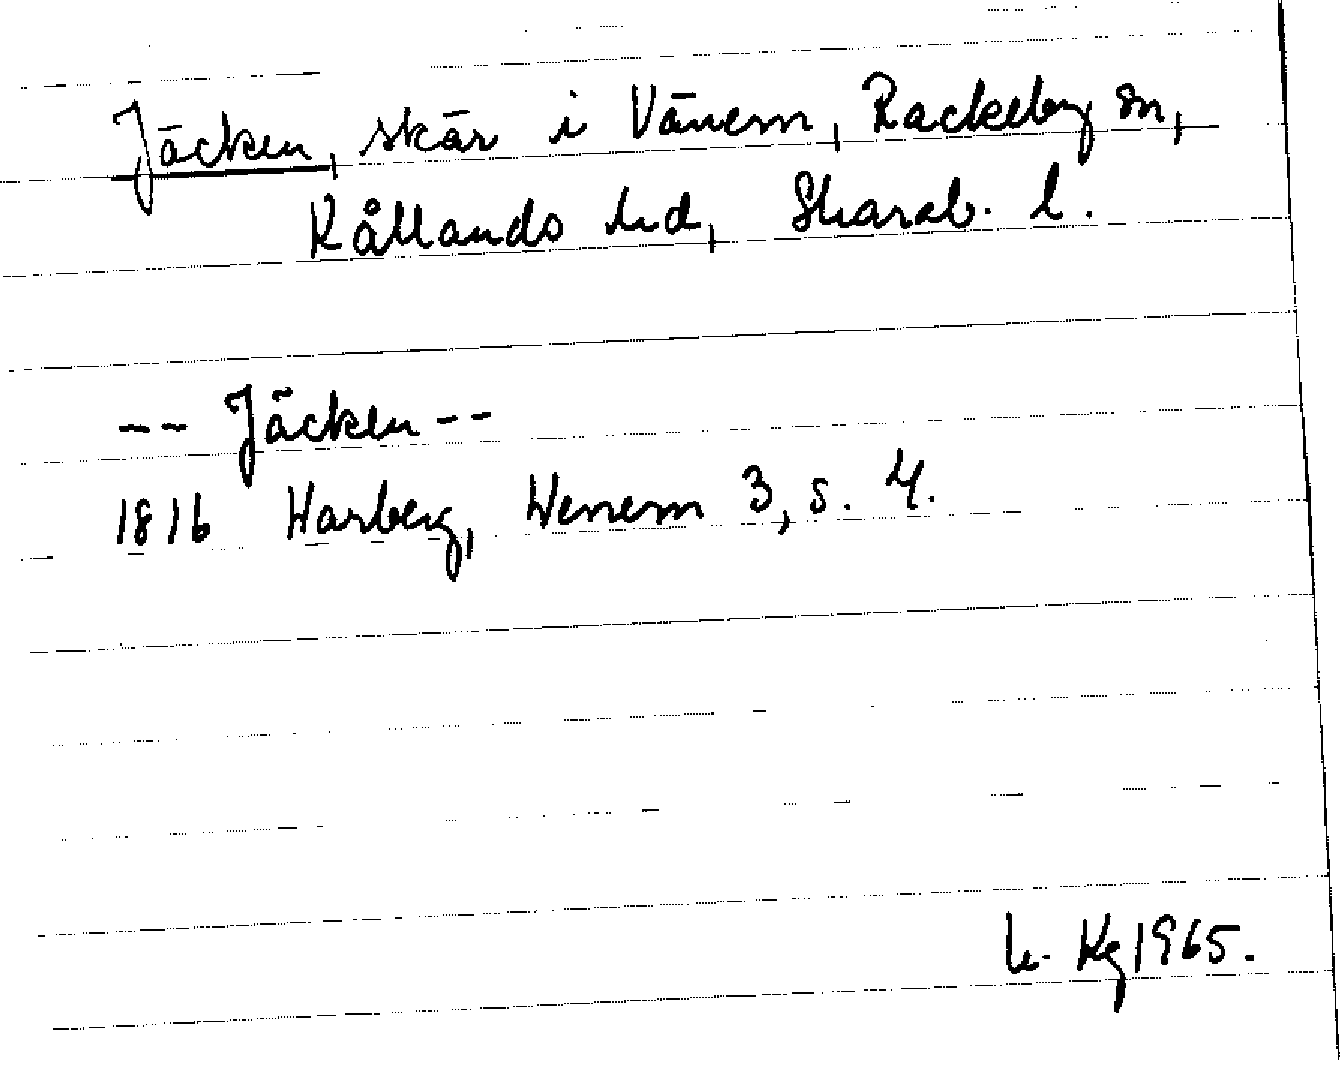 Jäcken, skär i Vänern, Rackeby sn,
Kållands hd, Skarab. l.
-- Jäcken --
1816 Warberg, Wenern 3, s. 4.
Kg 1965.